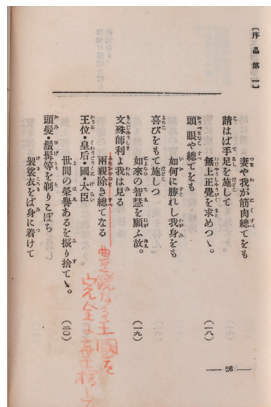 〔序品第一〕
妻や我が筋肉總てをも
請はば手足を施して
無上正覺を求めつゝ。 (一八)
頭眼や總てをも
如何に勝れし我身をも
喜びをもて施しつ
如來の智慧を願ふ故。 (一九)
文殊師利よ我は見る
兩親除き總てなる
王位・皇后・國・大臣
世間の榮譽あるを振り捨てゝ。 (二〇)
頭髮・鬚髯等を剃りこぼち
袈裟衣をば身に着けて
豊饒なる王國を
完全に棄捨して
— 26 —